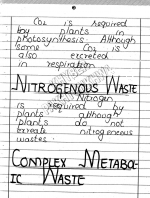 CO2 is required
by plants in
photosynthesis. Although
some CO2 is
also excreted
in respiration
NITROGENOUS WASTE
Nitrogen
is required by
plants although
plants do not
excrete nitrogenous
wastes.
COMPLEX METABOL
IC WASTE